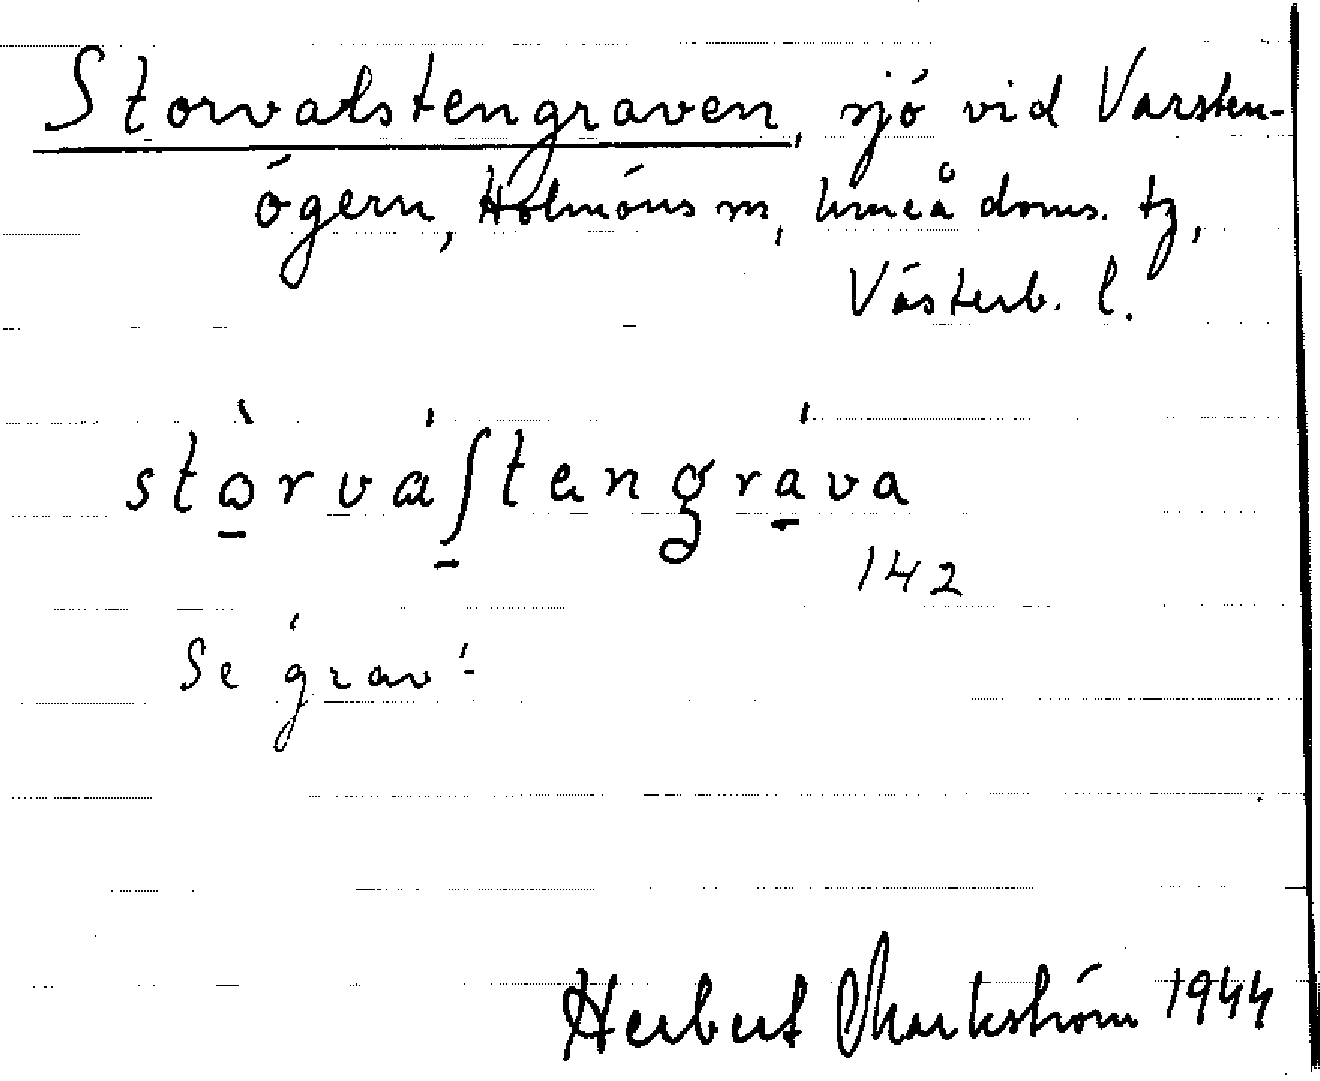 Storvalstengraven, sjö vid Varsten-
ögern, Holmöns sn, Umeå doms. tg,
Västerb. l.
stòrváʃtengráva
142
Se grav:
Herbert Markström 1944